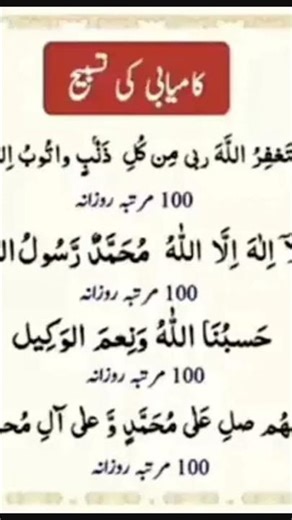 کامیابی کی تسبیح
تَغفِرُ اللَّهَ رَبِی مِن کُلِ ذَنْبٍ واتُوبُ اِلَ
100 مرتبہ روزانہ
آ اِلٰهَ اِلَّا اللّٰهُ مُحَمَّدٌ رَّسُولُ ال
100 مرتبہ روزانہ
حَسبُنَا اللّٰهُ وَنِعمَ الوَکِیل
100 مرتبہ روزانہ
هُم صلِ عَلٰی مُحَمَّدٍ وَّ عَلٰی آلِ مُحم
100 مرتبہ روزانہ